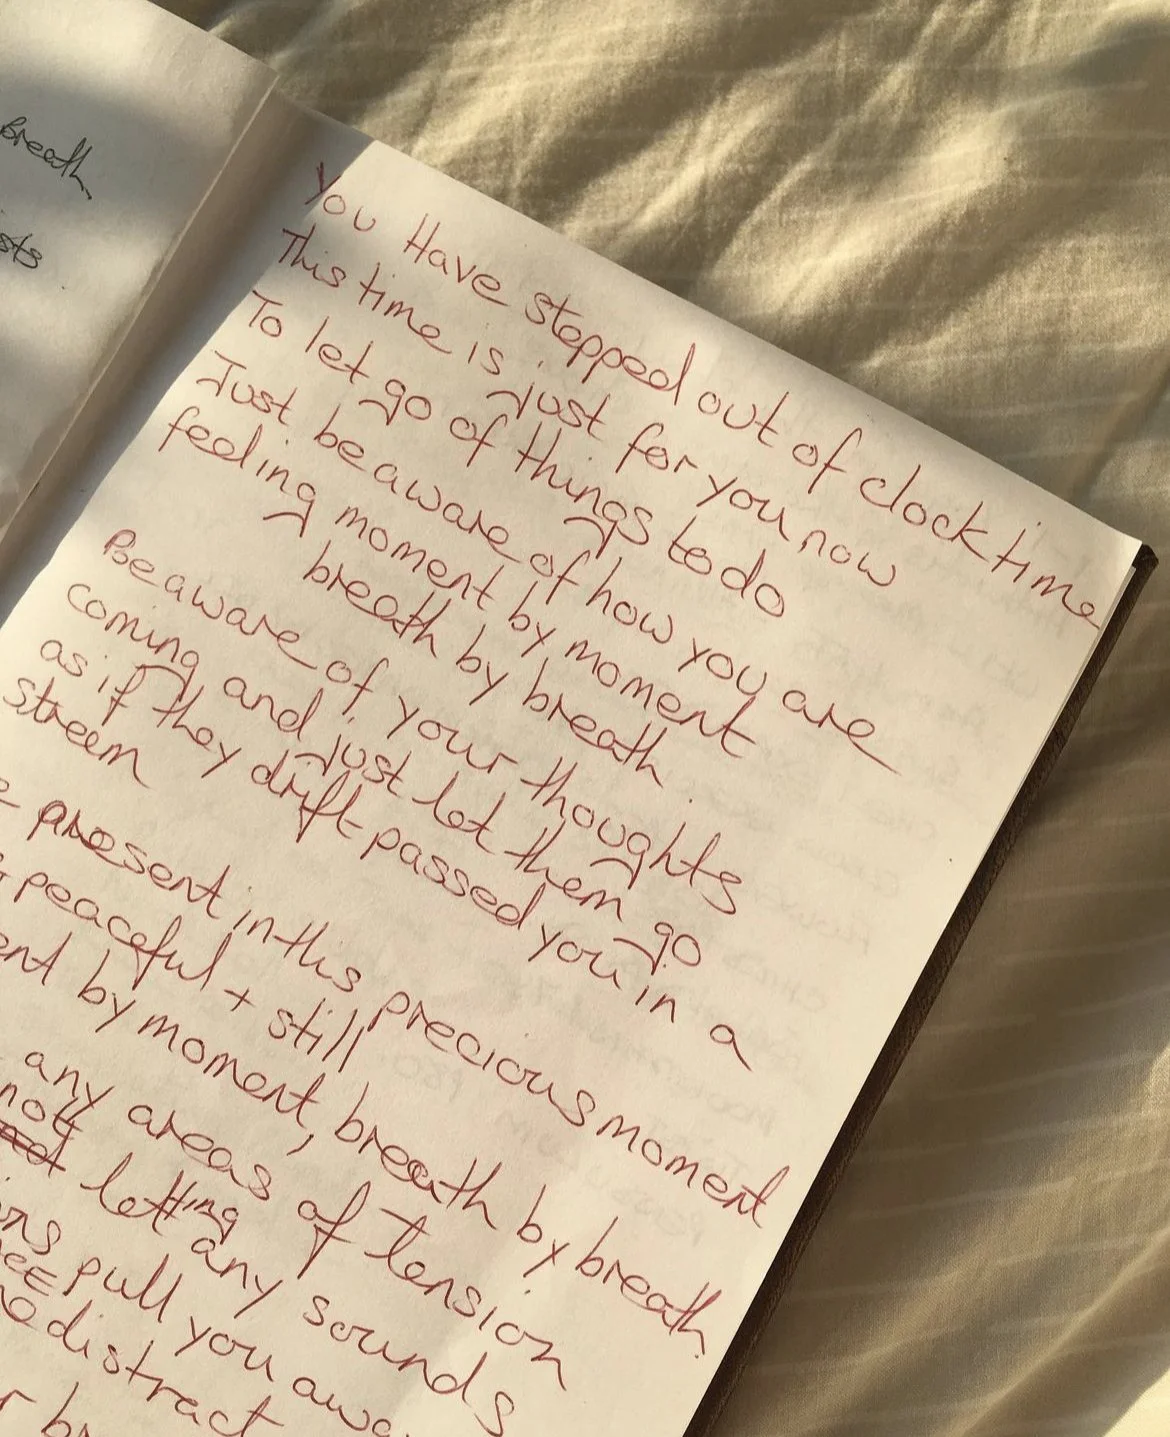 Breath
sts
You Have stepped out of clock time
This time is just for you now
To let go of things to do
Just be aware of how you are
feeling moment by moment
breath by breath.
Be aware of your thoughts
coming and just let them go
as if they drift passed you in a
streem
present in this precious moment
peaceful + still
ent by moment, breath by breath.
any areas of tension
not letting any sounds
pull you awa
distract
r br